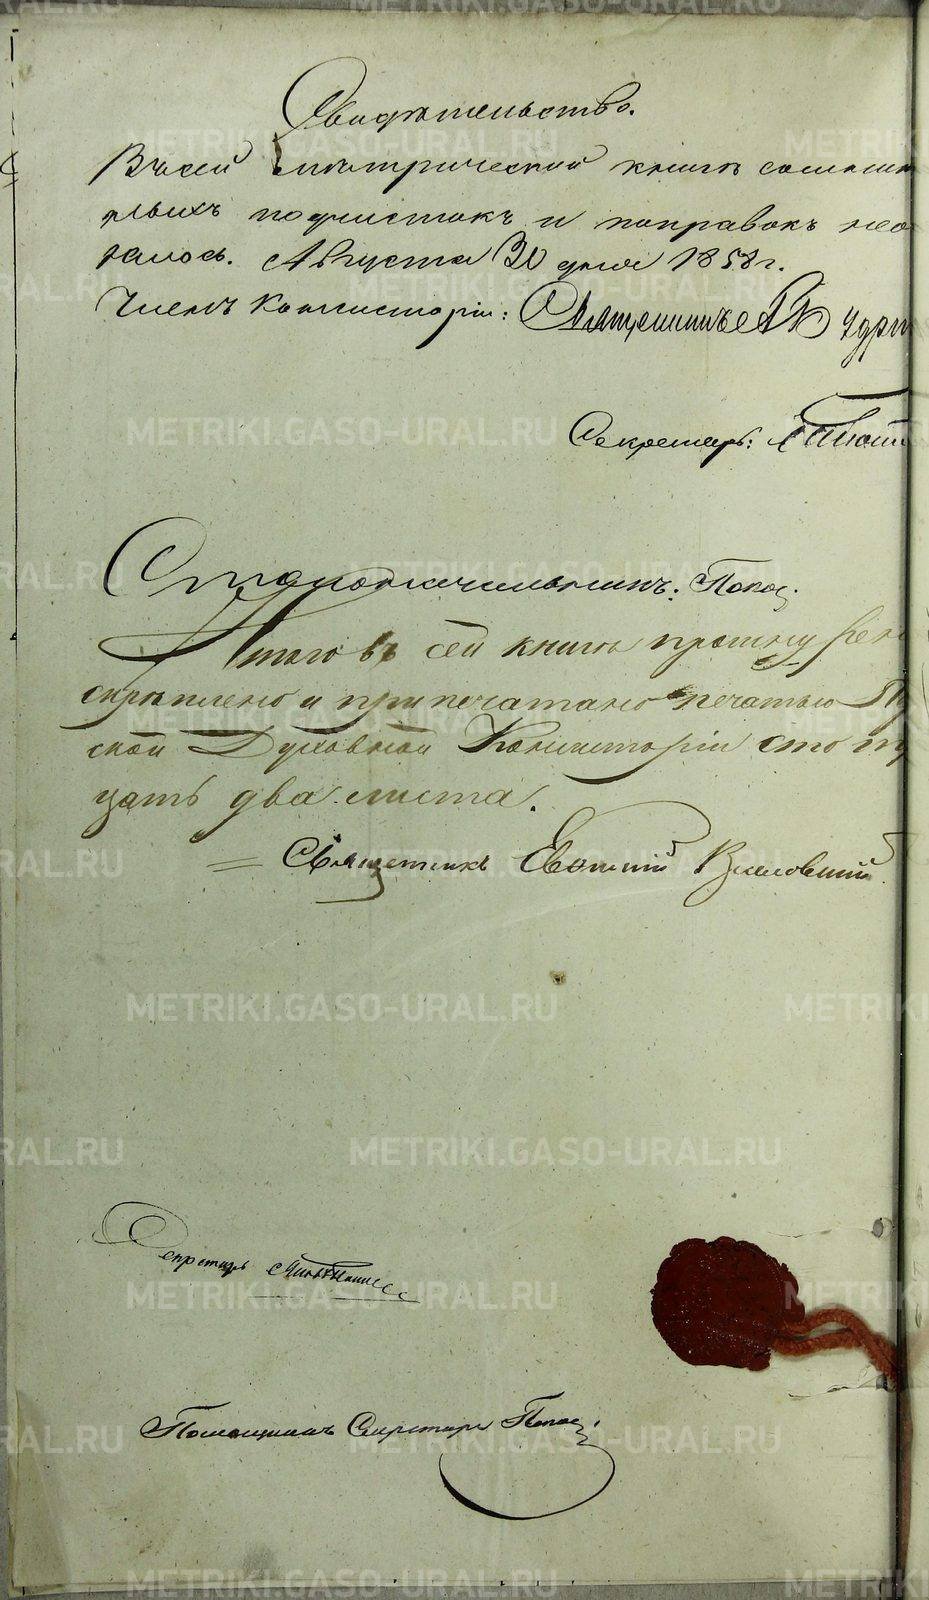 Свидѣтельство.
Въ сей метрической книгѣ сомнит
ельныхъ подчистокъ и поправокъ не о
залось. Августа 30 дня 1858 г.
Членъ Консисторіи: Священникъ
Секретарь:
Столоначальникъ: Попов
Итого въ сей книгѣ прошнуров
скрѣплено и припечатано печатью
ской Духовной Консисторіи сто т
цать два листа.
Священникъ Евѳимій
Секретарь
Помощникъ Секретаря Попов
METRIKI.GASO-URAL.RU